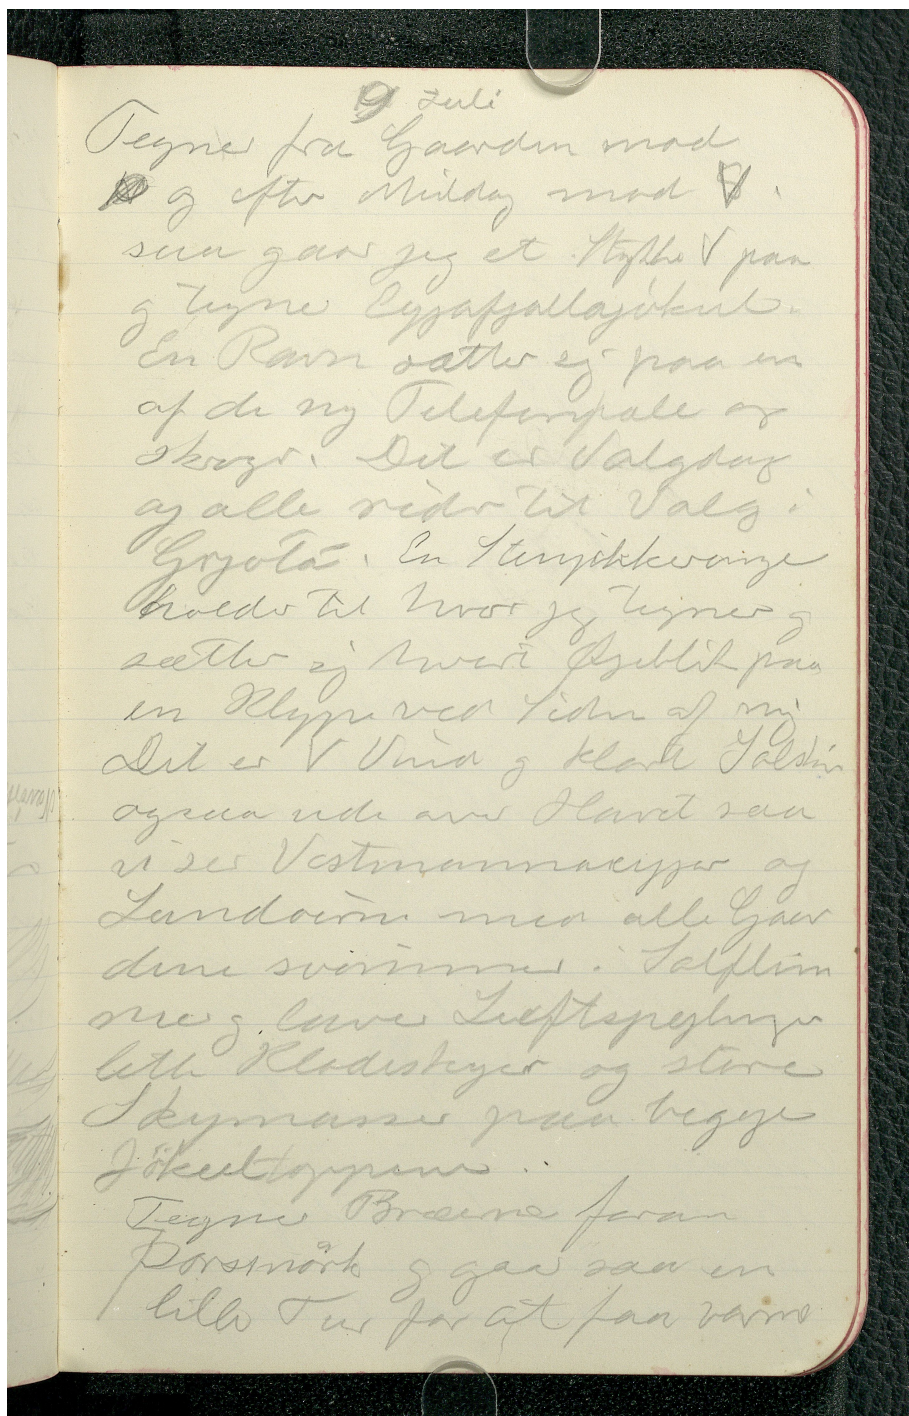 9 Juli
Tegner fra Gaarden mod
og efter Middag mod V.
saa gaar jeg et Stykke V paa
og tegner Eyjafjallajökul.
En Ravn sætter sig paa en
af de ny Telefonpæle og
skryger. Det er Valgdag
og alle rider til Valg i
Grjotá. En Stenpikkerunge
holder til hvor jeg tegner og
sætter sig hvert Øjeblik paa
en Klippe ved Siden af mig
Det er V Vind og klart Solskin
ogsaa ude over Havet saa
vi ser Vestmannaeyjar og
Landøerne med alle Gaar
dene svømmer i Solflim
mer og laver Luftspejlinger
lette Klodeskyer og store
Skymasser paa begge
Jökultoppene.
Tegner Bræerne foran
Þorsmörk og gaar saa en
lille Tur for at faa varme